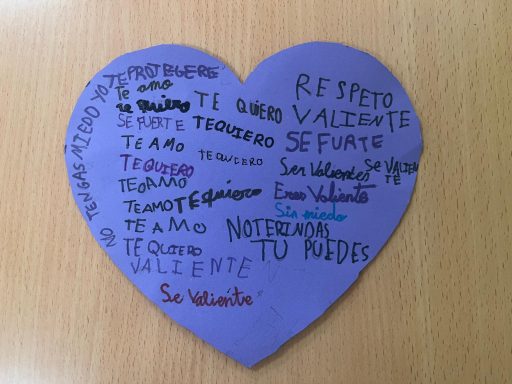 NO TENGAS MIEDO YO TE PROTEGERE
Te amo
te quiero
SE FUERTE
TE AMO
TEQUIERO
TEAMO
TEAMO
TE AMO
TE QUIERO
VALIENTE
Se Valiente
TE QUIERO
TEQUIERO
TE QUIERO
TE quiero
RESPETO
VALIENTE
SEFURTE
Ser Valientes
SE VALIEN
TE
Eres Valiente
Sin miedo
NOTERINDAS
TU PUEDES